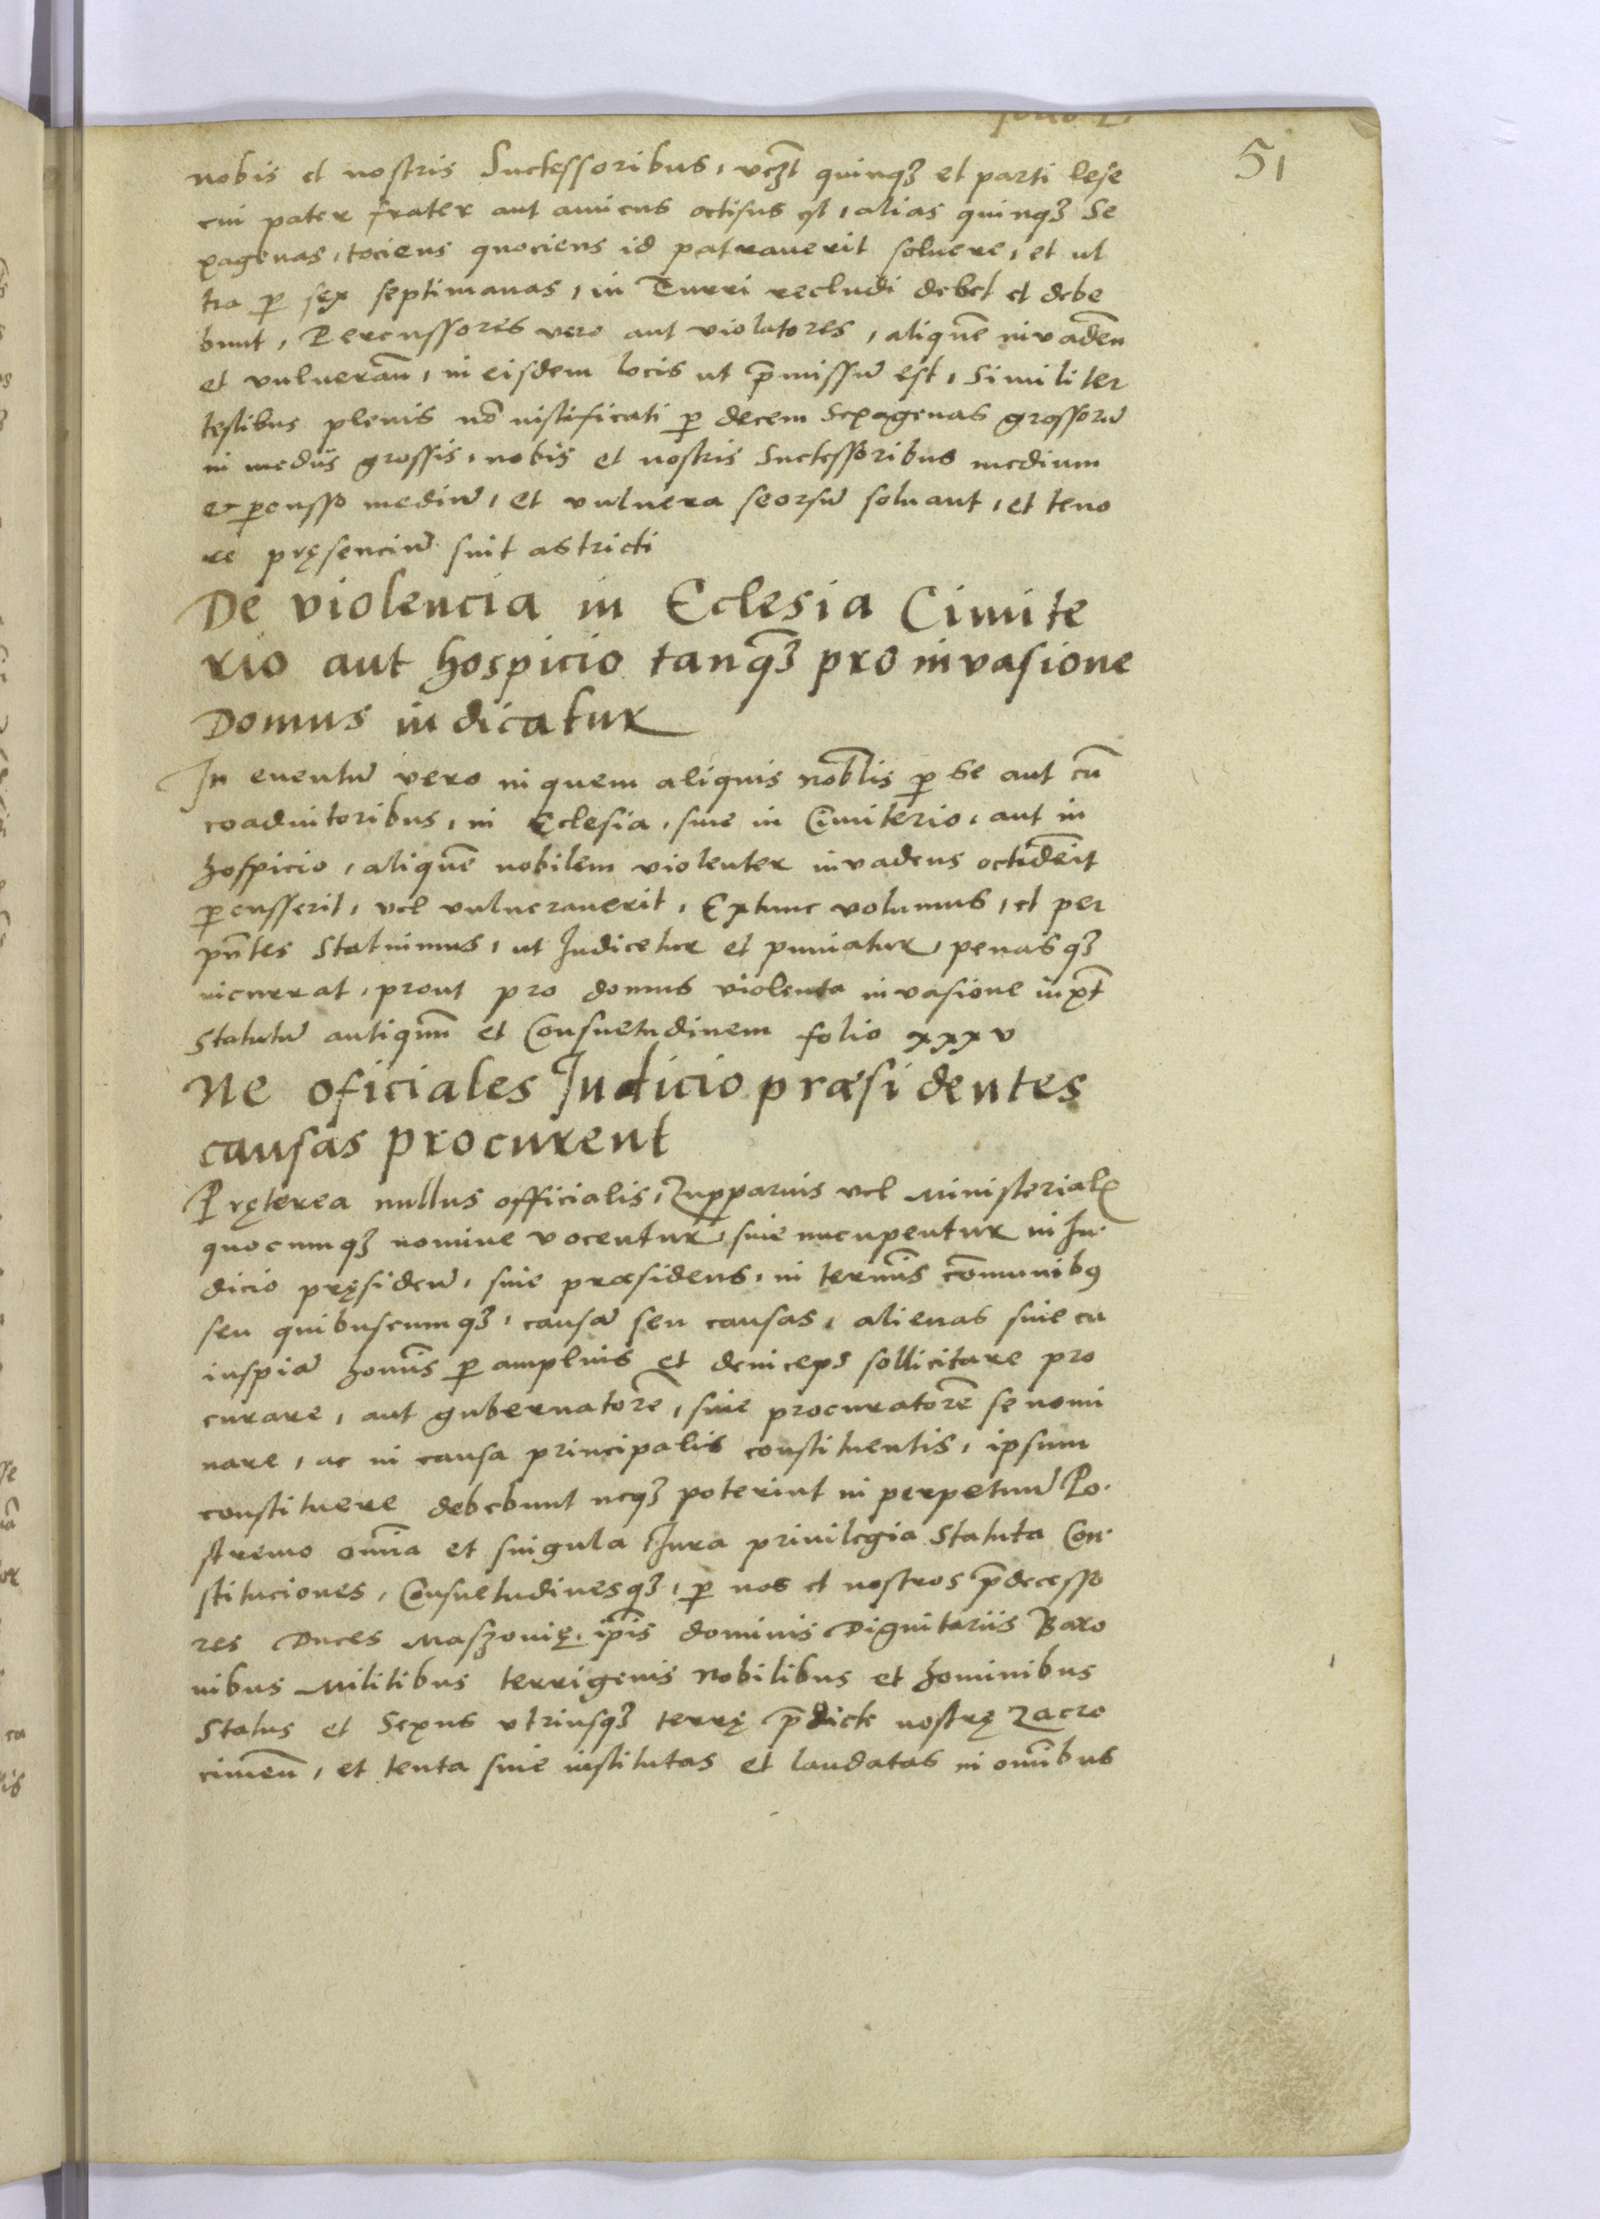 51
nobis et nostris Successoribus, vcȝt quinqȝ et parti lese
cui pater frater aut amicus occisus est, alias quinqȝ Se
xagenas, tociens quociens id patrauerit soluere, et ul
tra ꝑ sex septimanas, in Turri recludi debet et debe
bunt, Percussores vero aut violatores, aliquē invadeñ
et vulnerañ, in eisdem locis ut p̄missū est, Similiter
testibus plenis nō iustificati ꝑ decem Sexagenas grossorū
in mediis grossis, nobis et nostris Successoribus medium
et ꝑcusso mediū, et vulnera seorsū soluant, et teno
re pręsenciū sint astricti
De violencia in Eclesia Cimite
rio aut hospicio tanqȝ pro invasione
Domus iudicatur
In euentū vero in quem aliquis nobĺis ꝑ se aut cū
coadiutoribus, in Eclesia, siue in Cimiterio, aut in
hospicio, aliquē nobilem violenter invadens occiderit
ꝑcusserit, vel vulnerauerit, Extunc volumus, et per
pñtes Statuimus, ut Iudicetur et puniatur, penasqȝ
incurrat, prout pro domus violenta invasione iuxt̄
Statutū antiquū et Consuetudinem folio xxxv
Ne oficiales Iudicio præsidentes
causas procurent
Pręterea nullus officialis, Zupparius vel Ministerialꝭ
quocumqȝ nomine vocentur, siue nucupentur in Iu-
dicio pręsideñ, siue præsidens, in termīs cōmunibꝰ
seu quibuscumqȝ, causā seu causas, alienas siue cu
iuspiā homīs ꝑ amplius et deinceps sollicitare pro
curare, aut gubernatorē, siue procuratorē se nomi
nare, ac in causa principalis constituentis, ipsum
constituere debebunt neqȝ poterint in perpetuū Po-
stremo om̄ia et singula Iura priuilegia Statuta Con-
stituciones, Consuetudinesqȝ, ꝑ nos et nostros p̄decesso
res Duces Masȝonię, ip̄is dominis Dignitariis Baro
nibus Militibus terrigenis Nobilibus et hominibus
Status et Sexus vtriusqȝ terrę p̄dicte nostrę Zacro
cimeñ, et tenta siue institutas et laudatas in om̄ibus